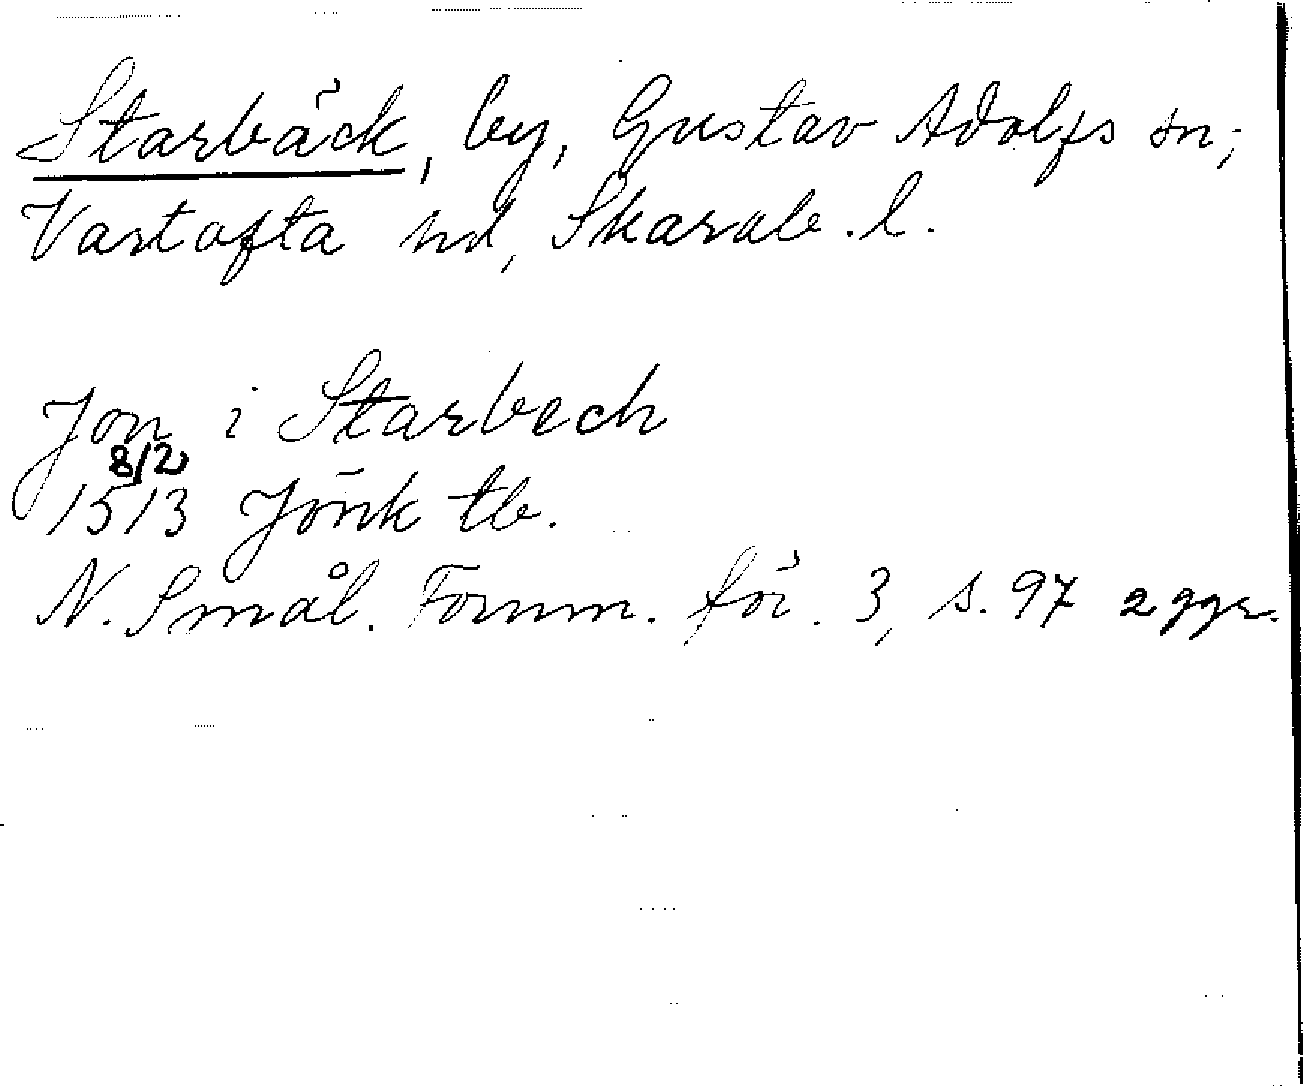 Starbäck, by, Gustav Adolfs sn,
Vartofta hd, Skarab. l.
Jon i Starbech
8/2
1513 Jönk tb.
N. Smål. Fornm. för. 3, s. 97 2 ggr.